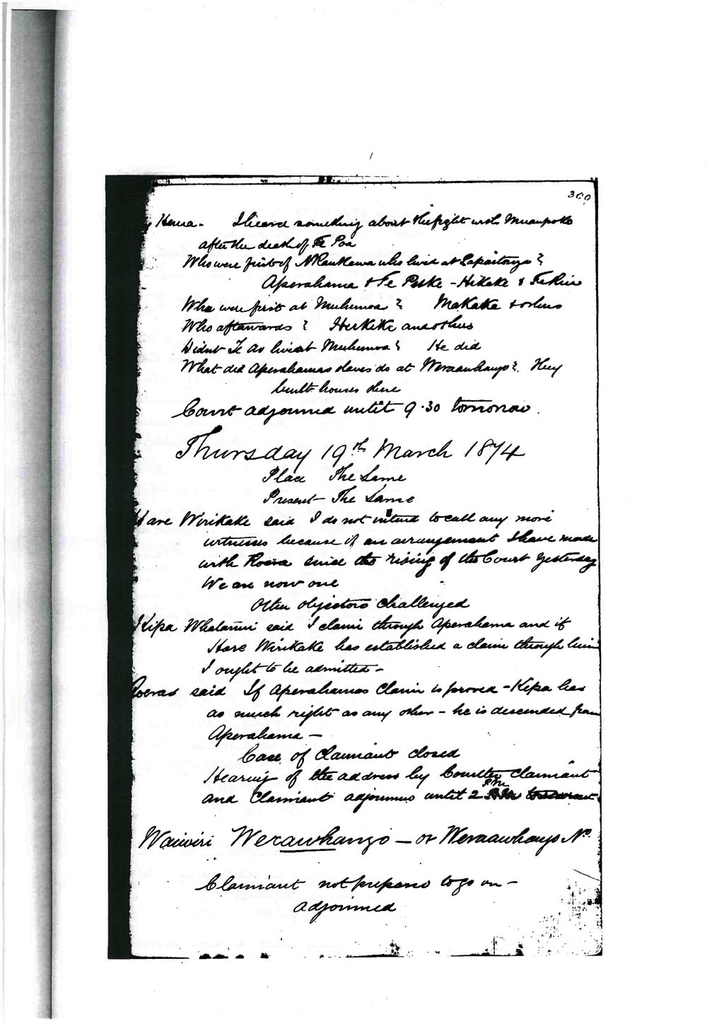 300
I heard something about the fight with Muaupoko
after the death of Te Poa
Who were first of NRaukawa who lived at
Aperahama & Te Puke - Hikake &
Who were first at Muhunoa? Makaka & others
Who afterwards? and others
Didnt Te Ao live at Muhunoa? He did
What did Aperahamas slaves do at Weraawhango? They
built houses there
Court adjourned until 9.30 tomorrow.
Thursday 19th March 1874
Place The Same
Present The Same
Hare Wirikake said I do not intend to call any more
witnesses because of an arrangement I have made
with Roera since the rising of the Court yesterday
We are now one
Other objectors challenged
Kipa Whatanui said I claim through Aperahama and if
Hare Wirikake has established a claim through him
I ought to be admitted -
Roeras said If Aperahamas Claim is proved - Kipa has
as much right as any other - he is descended from
Aperahama -
Case of Claimant closed
Hearing of the address by Counter claimant
and Claimant adjourned until 2 PM
Waiwiri Werawhango - or Weraawhango No.
Claimant not prepared to go on -
adjourned